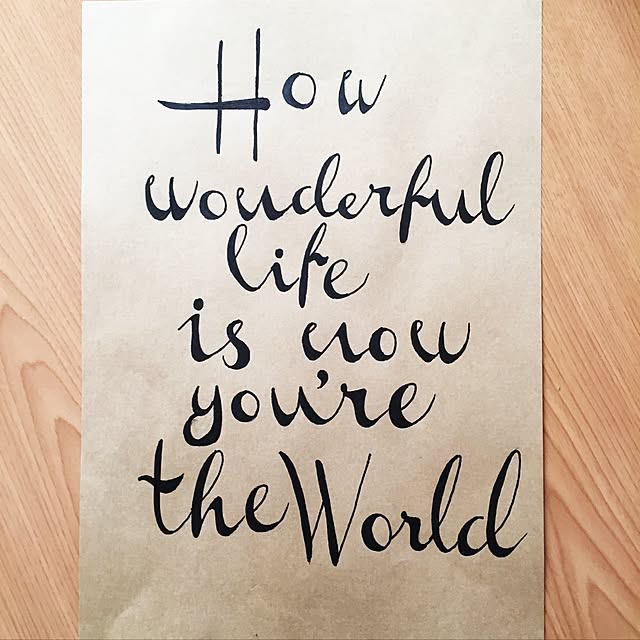 How
wonderful
life
is now
you're
the World